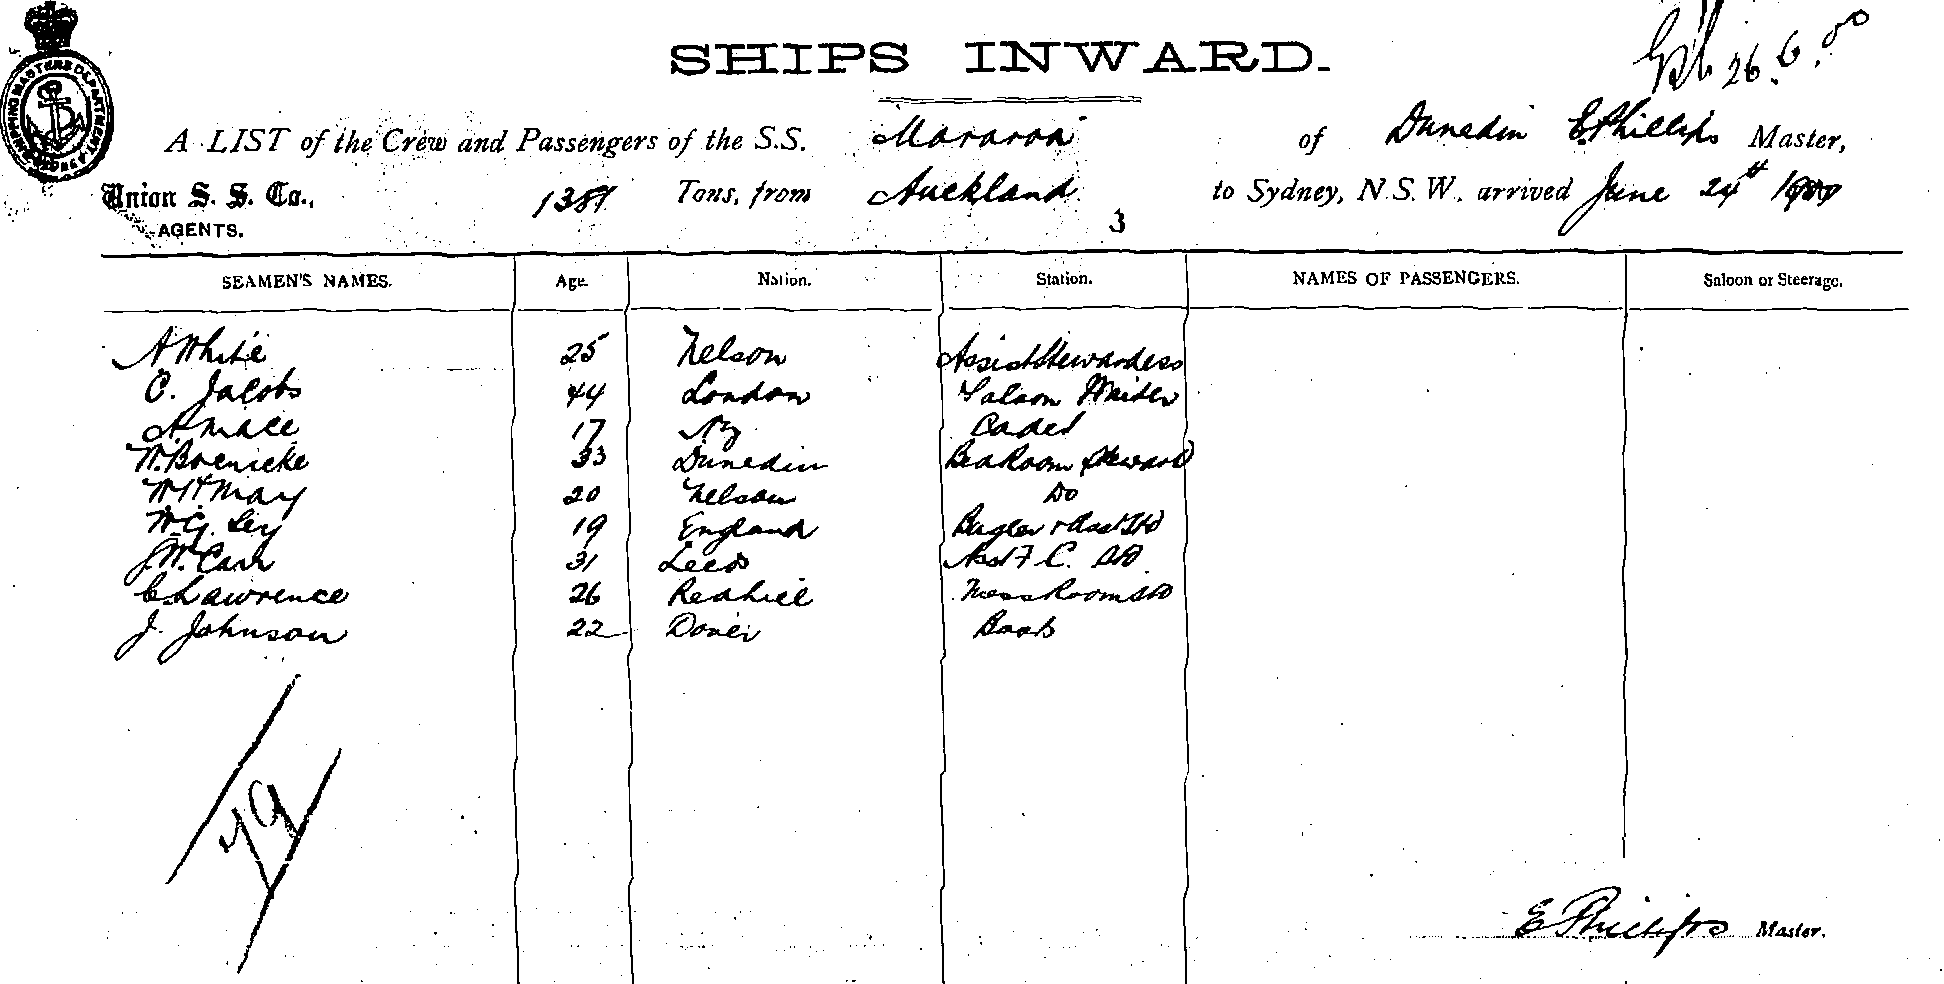 SHIPS INWARD.
26.6.00
A LIST of the Crew and Passengers of the S.S. Mararoa of Dunedin E. Phillips Master,
Union S. S. Co., 1381 Tons, from Auckland to Sydney, N.S.W., arrived June 24th 1900
AGENTS.
3
SEAMEN'S NAMES. Age Nation. Station. NAMES OF PASSENGERS. Saloon or Steerage.
A White 25 Nelson Assist Stewardess
C. Jacobs 44 London Saloon Waiter
A. Mace 17 NZ Cadet
W. Boenicke 33 Dunedin Bed Room Steward
W H May 20 Nelson Do
W.G. Ley 19 England Bugler & Asst Std
J.W. Carr 31 Leeds Asst F. C. Std
C. Lawrence 26 Redhill Mess Room Std
J. Johnson 22 Dover Boots
79
E Phillips Master.